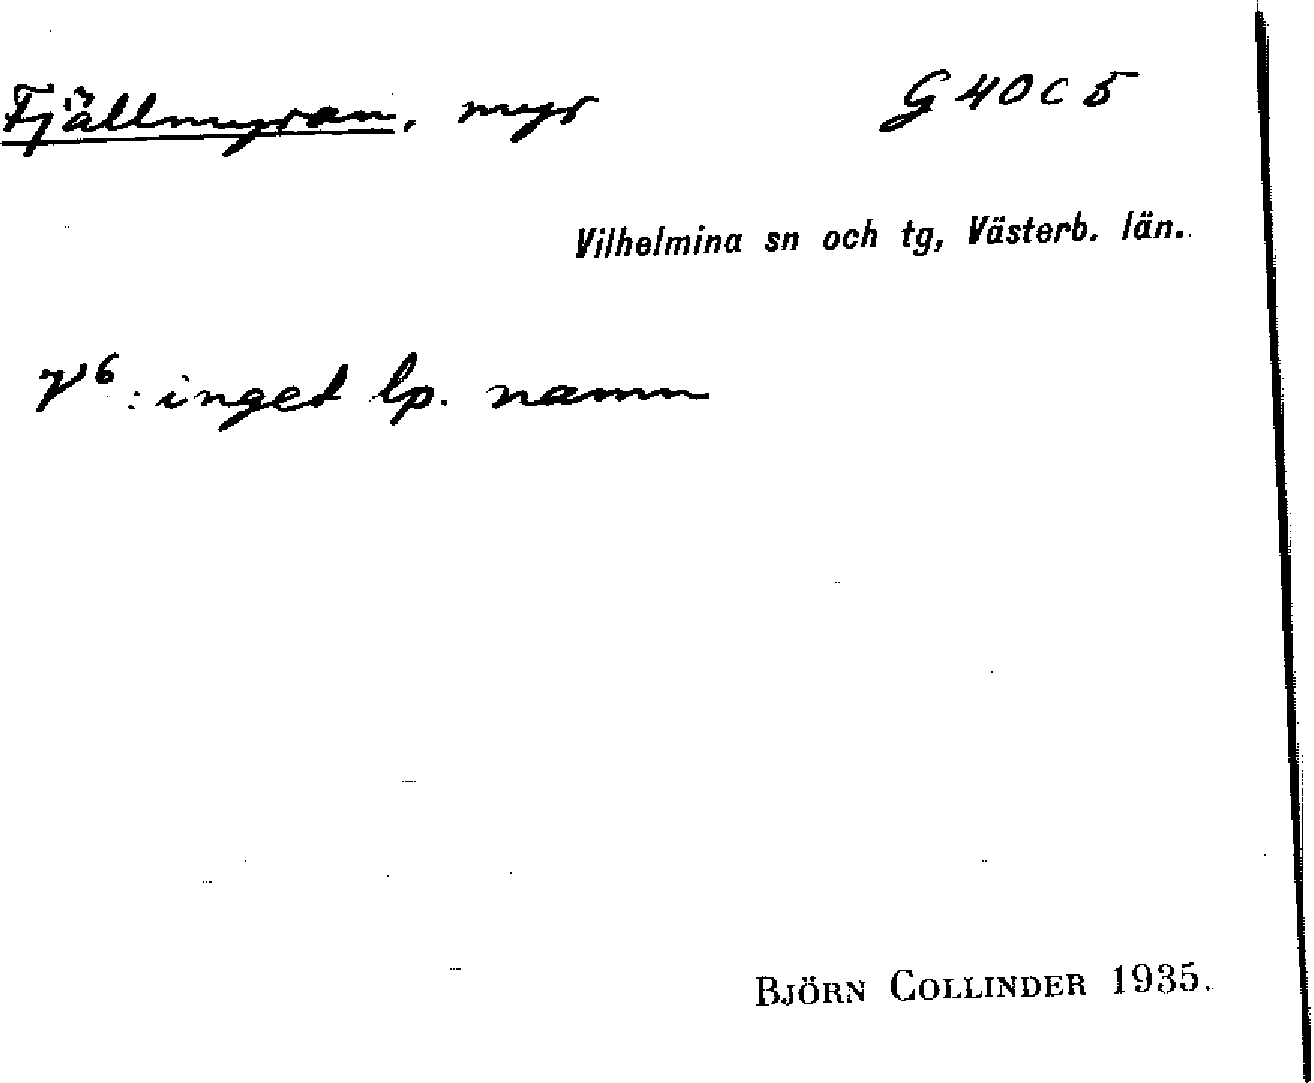 Fjällmyran, myr G 40 C 5
Vilhelmina sn och tg, Västerb. län.
V⁶: inget lp. namn
BJÖRN COLLINDER 1935.